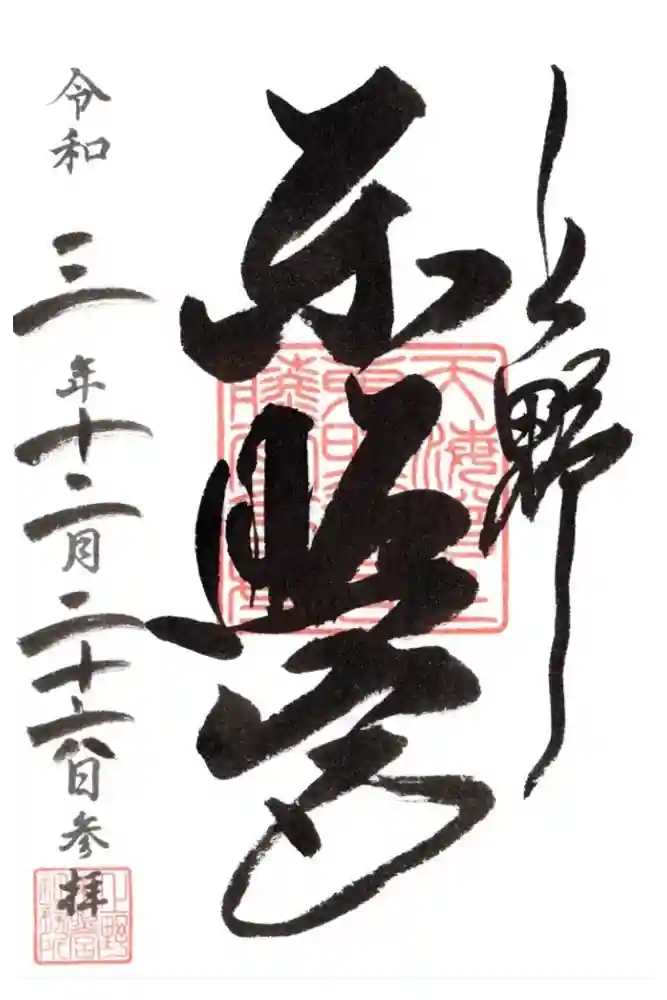 上野
東照宮
令和三年十二月二十六日参拝